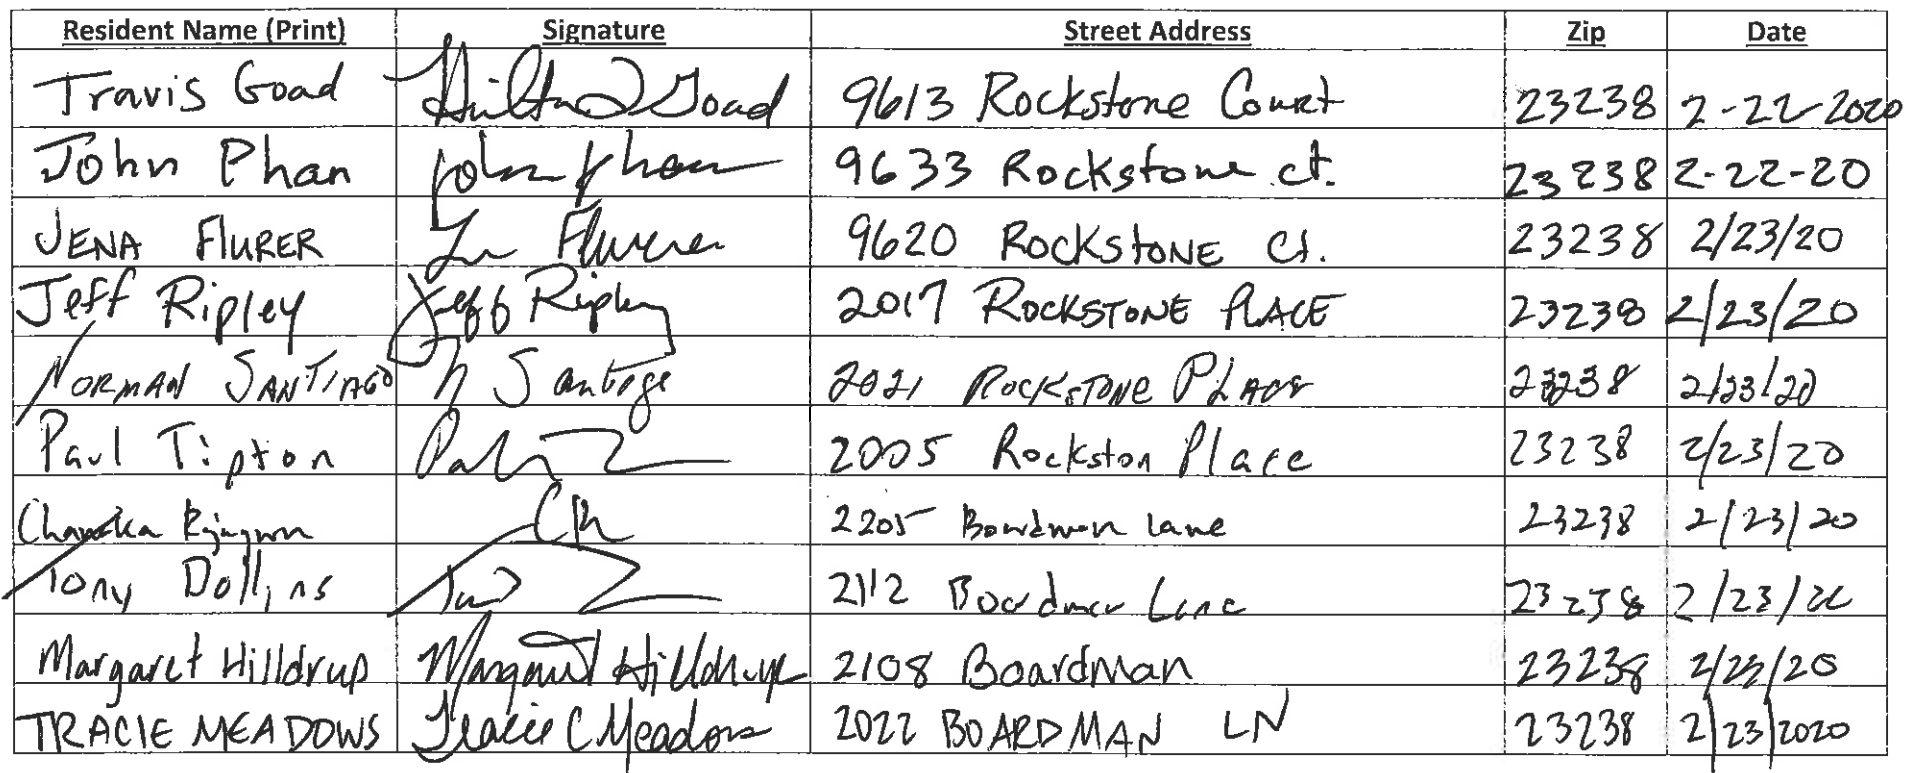 Resident Name (Print) Signature Street Address Zip Date
Travis Goad Hilton Goad 9613 Rockstone Court 23238 2-22-2020
John Phan John Phan 9633 Rockstone ct. 23238 2-22-20
JENA FlURER Flurer 9620 ROCKSTONE Ct. 23238 2/23/20
Jeff Ripley Jeff Ripley 2017 ROCKSTONE PLACE 23238 2/23/20
NORMAN SANTIAGO N Santiago 2021 ROCKSTONE PLACE 23238 2/23/20
Paul Tipton 2005 Rockston Place 23238 2/23/20
2205 Boardman Lane 23238 2/23/20
Tony Dollins 2112 Boardman Lane 23238 2/23/20
Margaret Hilldrup Margaret Hilldrup 2108 Boardman 23238 2/23/20
TRACIE MEADOWS Tracie C Meadows 2022 BOARDMAN LN 23238 2/23/2020